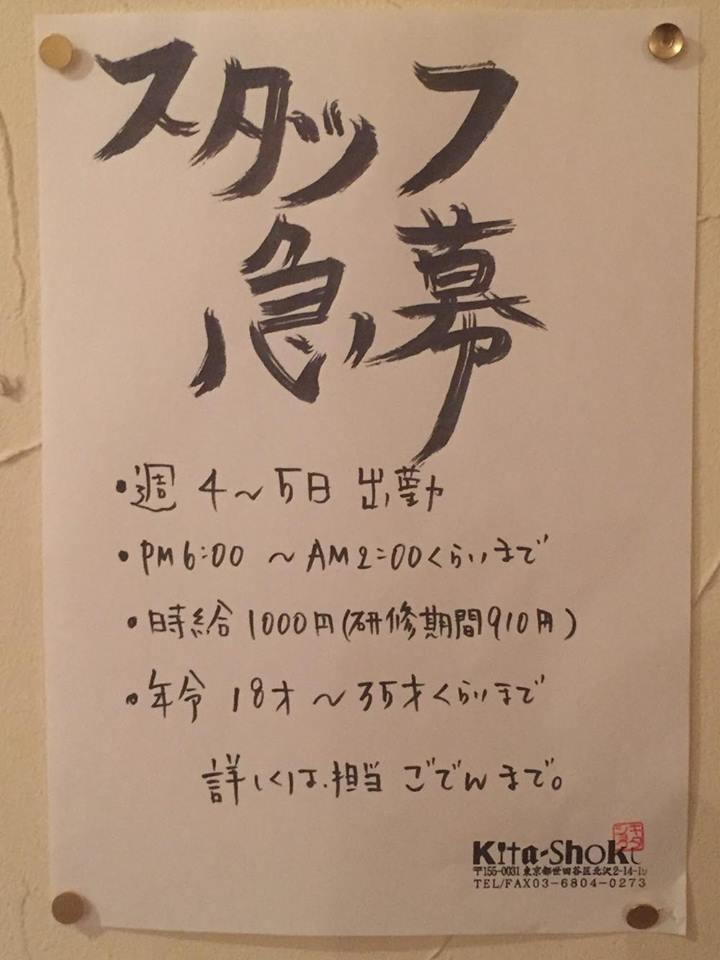 スタッフ
急募
・週4〜5日 出勤
・PM6:00 〜AM2:00くらいまで
・時給1000円(研修期間910円)
・年令 18才〜35才くらいまで
詳しくは、担当 ごでんまで。
Kita-Shoku
〒155-0031 東京都世田谷区北沢2-14-
TEL/FAX03-6804-0273